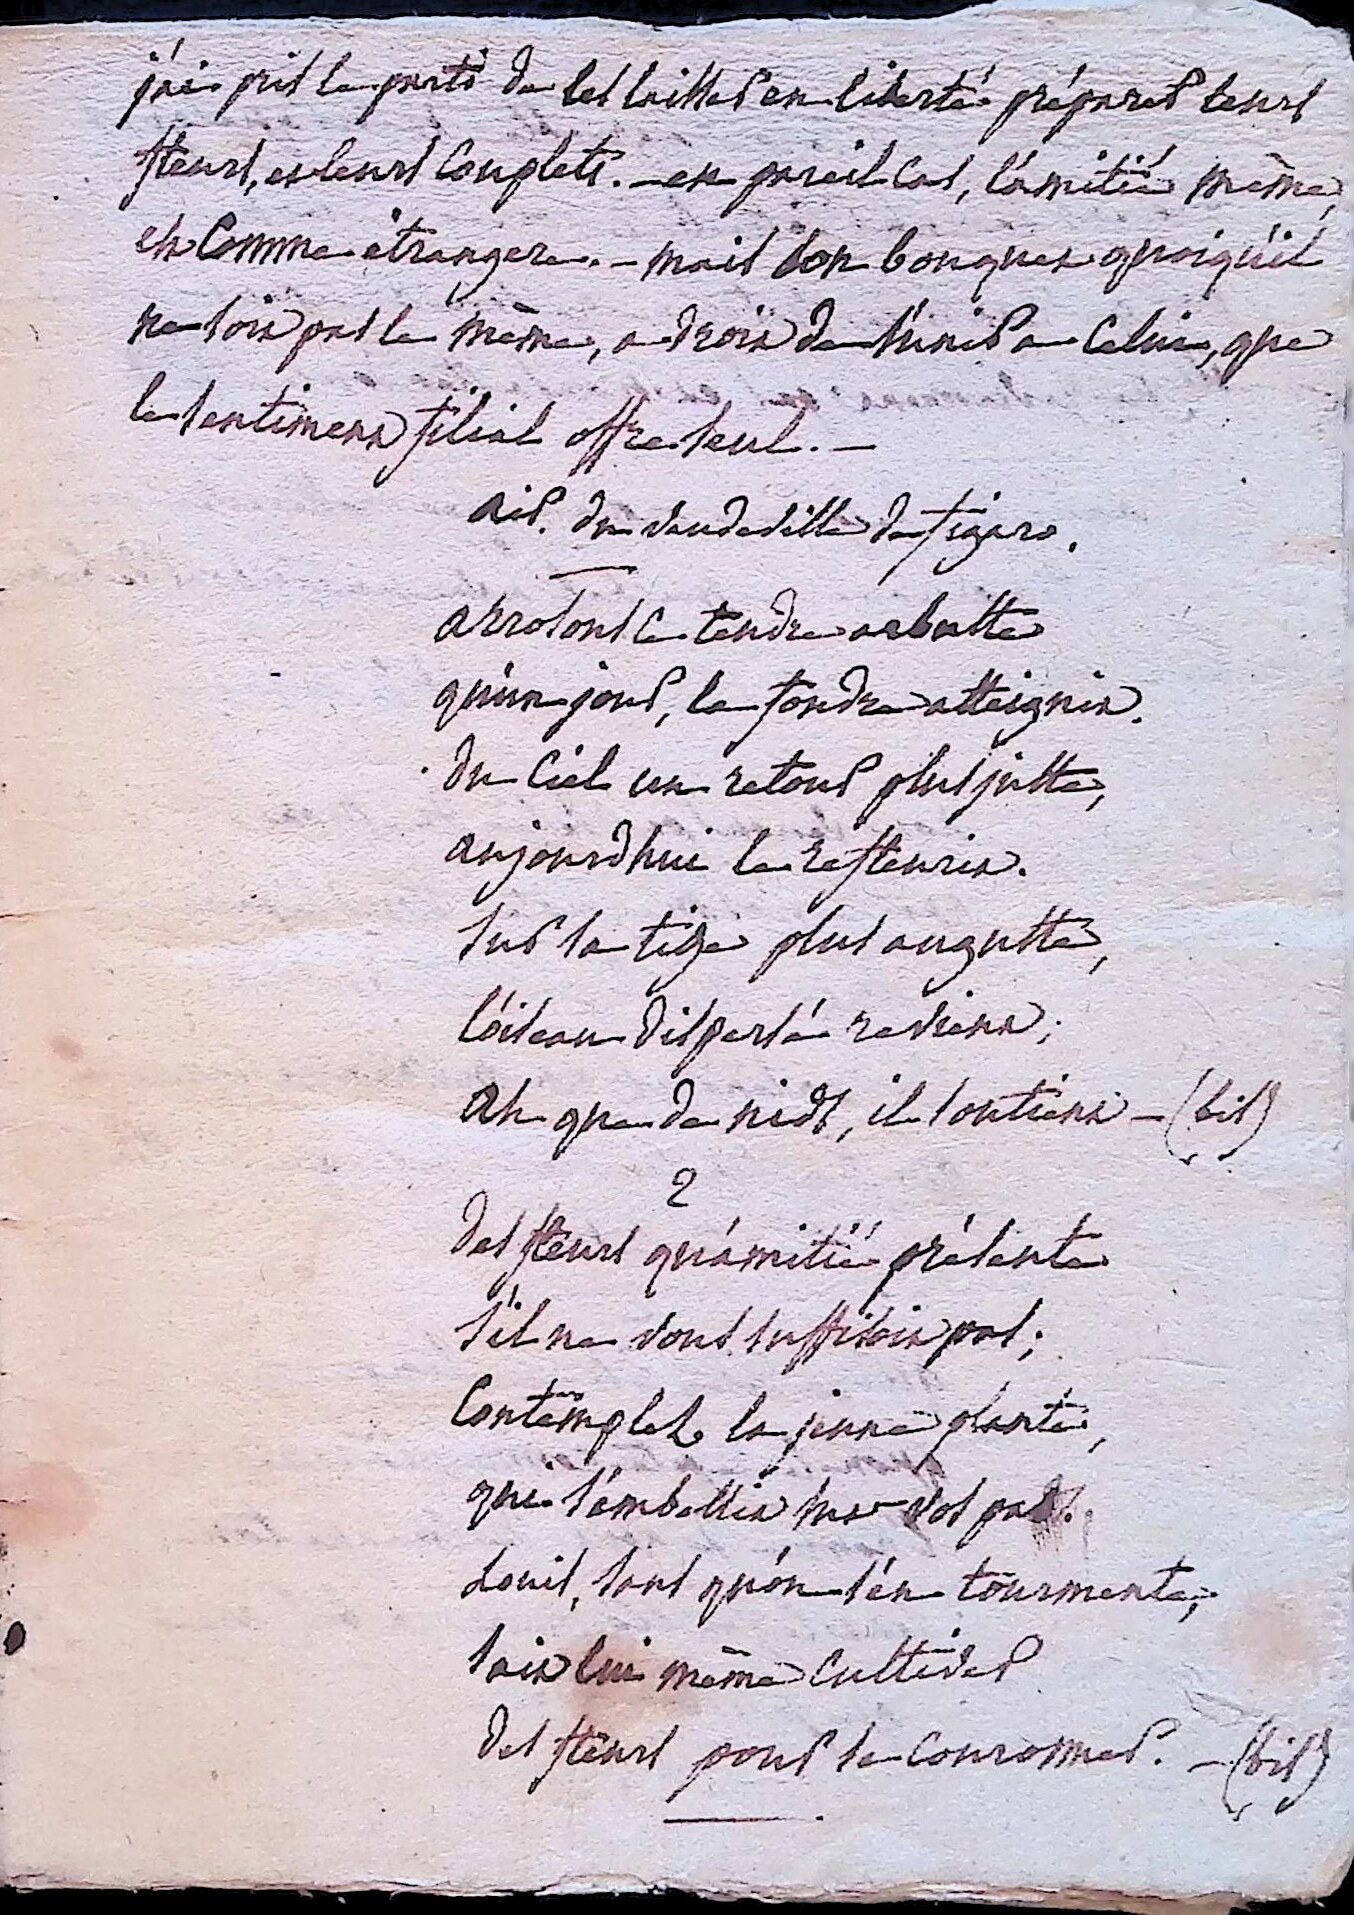 j'ai pris le parti de les laisser en liberté préparer leurs
fleurs, et leurs Couplets. - en pareil Cas, l'amitié même,
est Comme étrangere. - mais son bouquet quoiqu'il
ne soit pas le même, a droit de s'unir a Celui, que
le sentiment filial offre seul. -
air. du vaudeville de figaro.
arrosons Ce tendre arbuste
qu'un jour, la foudre atteignit.
du Ciel un retour plus juste,
aujourdhui le refleurit.
sur sa tige plus auguste,
l'oiseau dispersé revient;
ah que de nids, il soutient - (bis)
2
des fleurs qu'amitié présente
s'il ne vous suffisoit pas;
Contemplez la jeune plante,
qui s'embellit sur vos pas.
Louis, sans qu'on s'en tourmente,
sait lui même Cultiver
des fleurs pour se Couronner. - (bis)